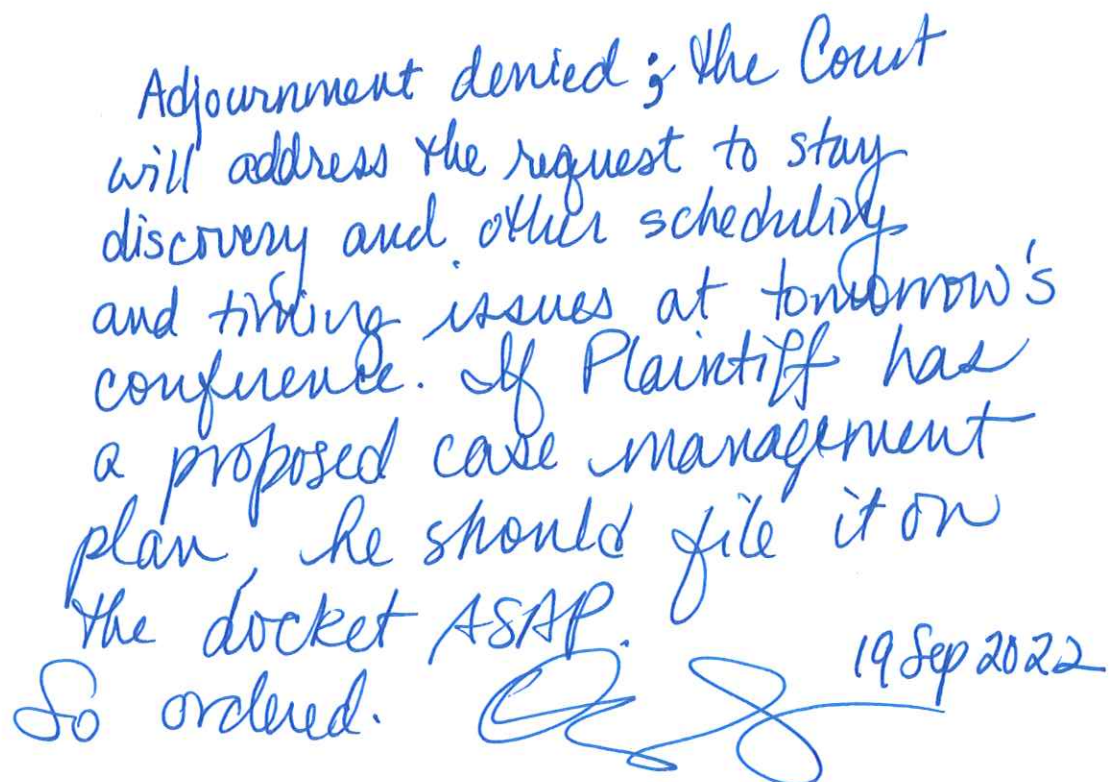 Adjournment denied; the Court
will address the request to stay
discovery and other scheduling
and timing issues at tomorrow's
conference. If Plaintiff has
a proposed case management
plan, he should file it on
the docket ASAP.
So ordered.
19 Sep 2022